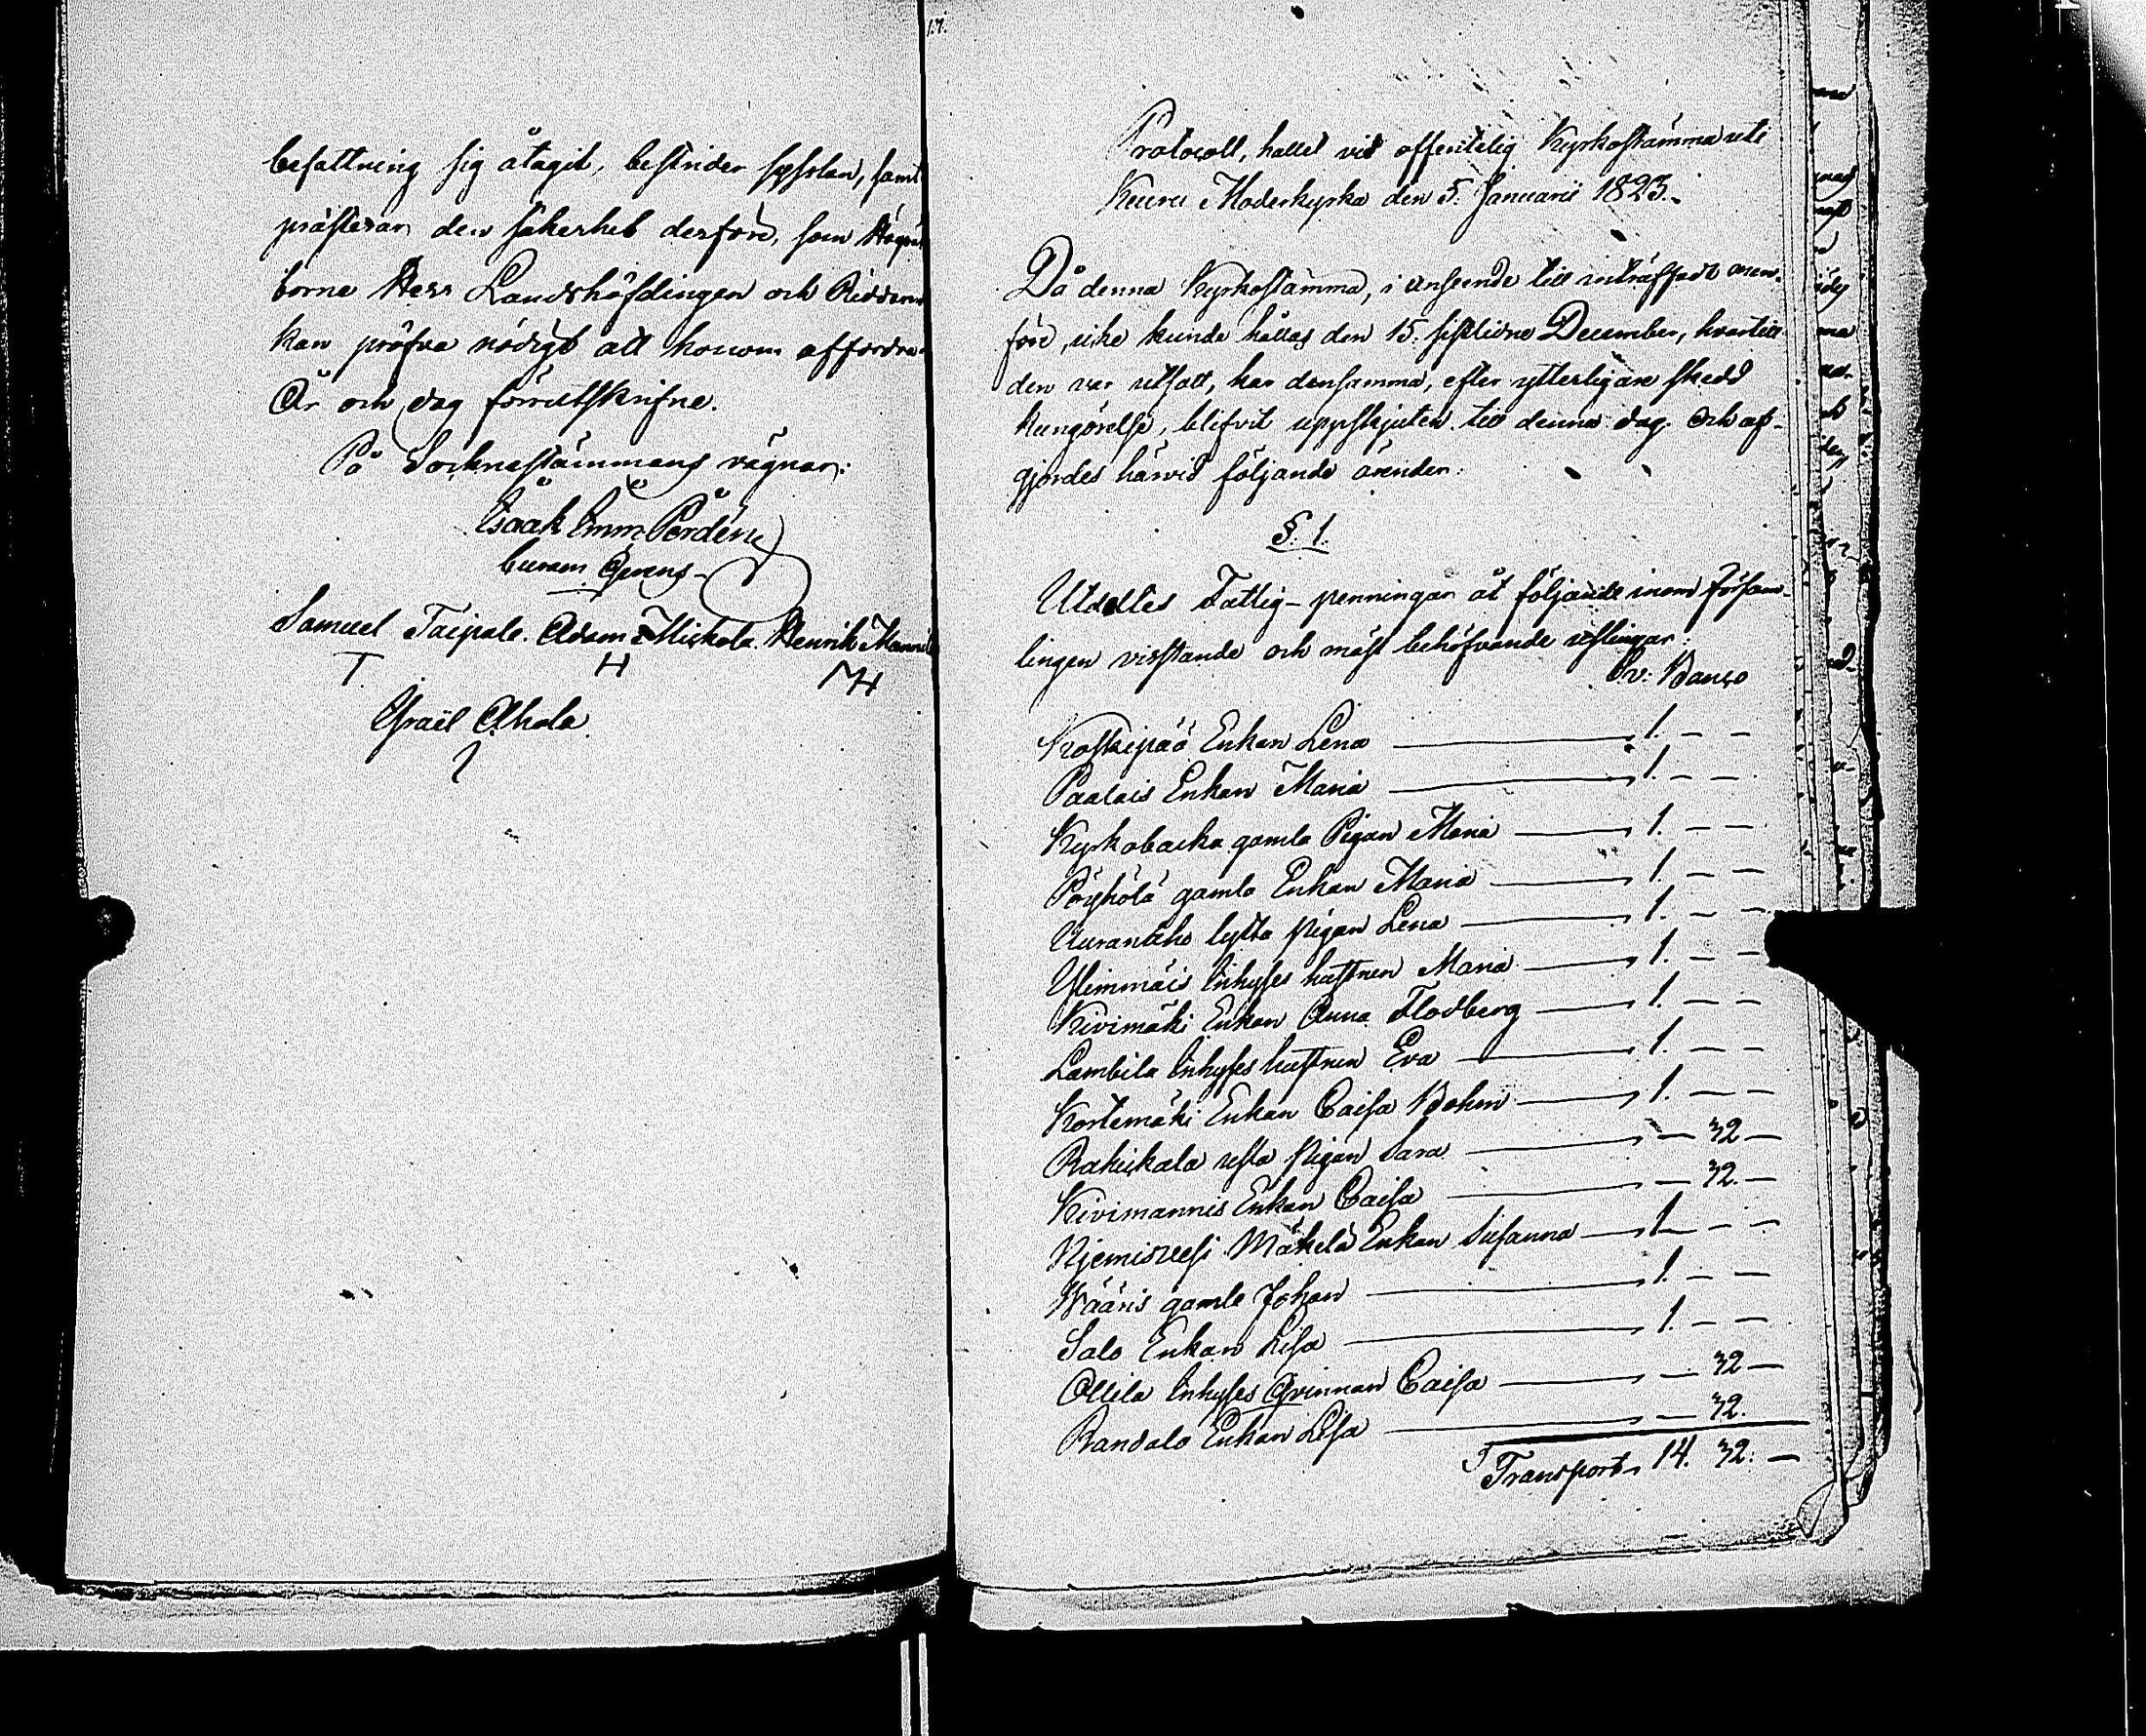 befattning sig åtagit, bestrider sysslan, samt
præsterar den säkerhet derföre, som Högväl
borne Herr Landshöfdingen och Riddaren
kan pröfva nödigt att honom affordra.
År och dag förrutskrifne.
På Socknestämmans vägnar:
Isaak Emm. Pordén
Curam Gerens
Samuel Taipale. Adam Miskola. Henrik Mannila
T H MH
Israël Ahola.
17.
Protocoll, hållet vid offentelig Kyrkostämma uti
Keuru Moderkyrka den 5. Januarii 1823.
Då denna Kyrkostämma, i anseende till inträffadt
före, icke kunde hållas den 15. sistlidne December, hvartill
den var utsatt, har densamma, efter ytterligare skedd
kungörelse, blifvit uppskjuten till denna dag. Och af-
gjordes härvid följande ärender:
§. 1.
Utdeltes Fattig-penningar åt följande inom försam-
lingen vistande och mäst behöfvande usslingar:
Rr: Banco
Koskipää Enkan Lena 1. — —
Paalais Enkan Maria 1. — —
Kyrkobacka gamla Pigan Maria 1. — —
Pöyhölä gamla Enkan Maria 1. — —
Uurantaho lytta pigan Lena 1. — —
Ylimmäis Inhyses hustrun Maria 1. — —
Kivimäki Enkan Anna Flodberg 1. — —
Lambila Inhyses hustrun Eva 1. — —
Kortemäki Enkan Caisa Bohm 1. — —
Rakeikala usla Pigan Sara — 32 —
Kivimannis Enkan Caisa — 32. —
Njemisvesi Mäkelä Enkan Susanna 1. — —
Wääris gamle Johan 1. — —
Salo Enkan Lisa 1. — —
Ollila Inhyses Qvinnan Caisa — 32 —
Randalo Enkan Lisa — 32.
Transport 14. 32. —